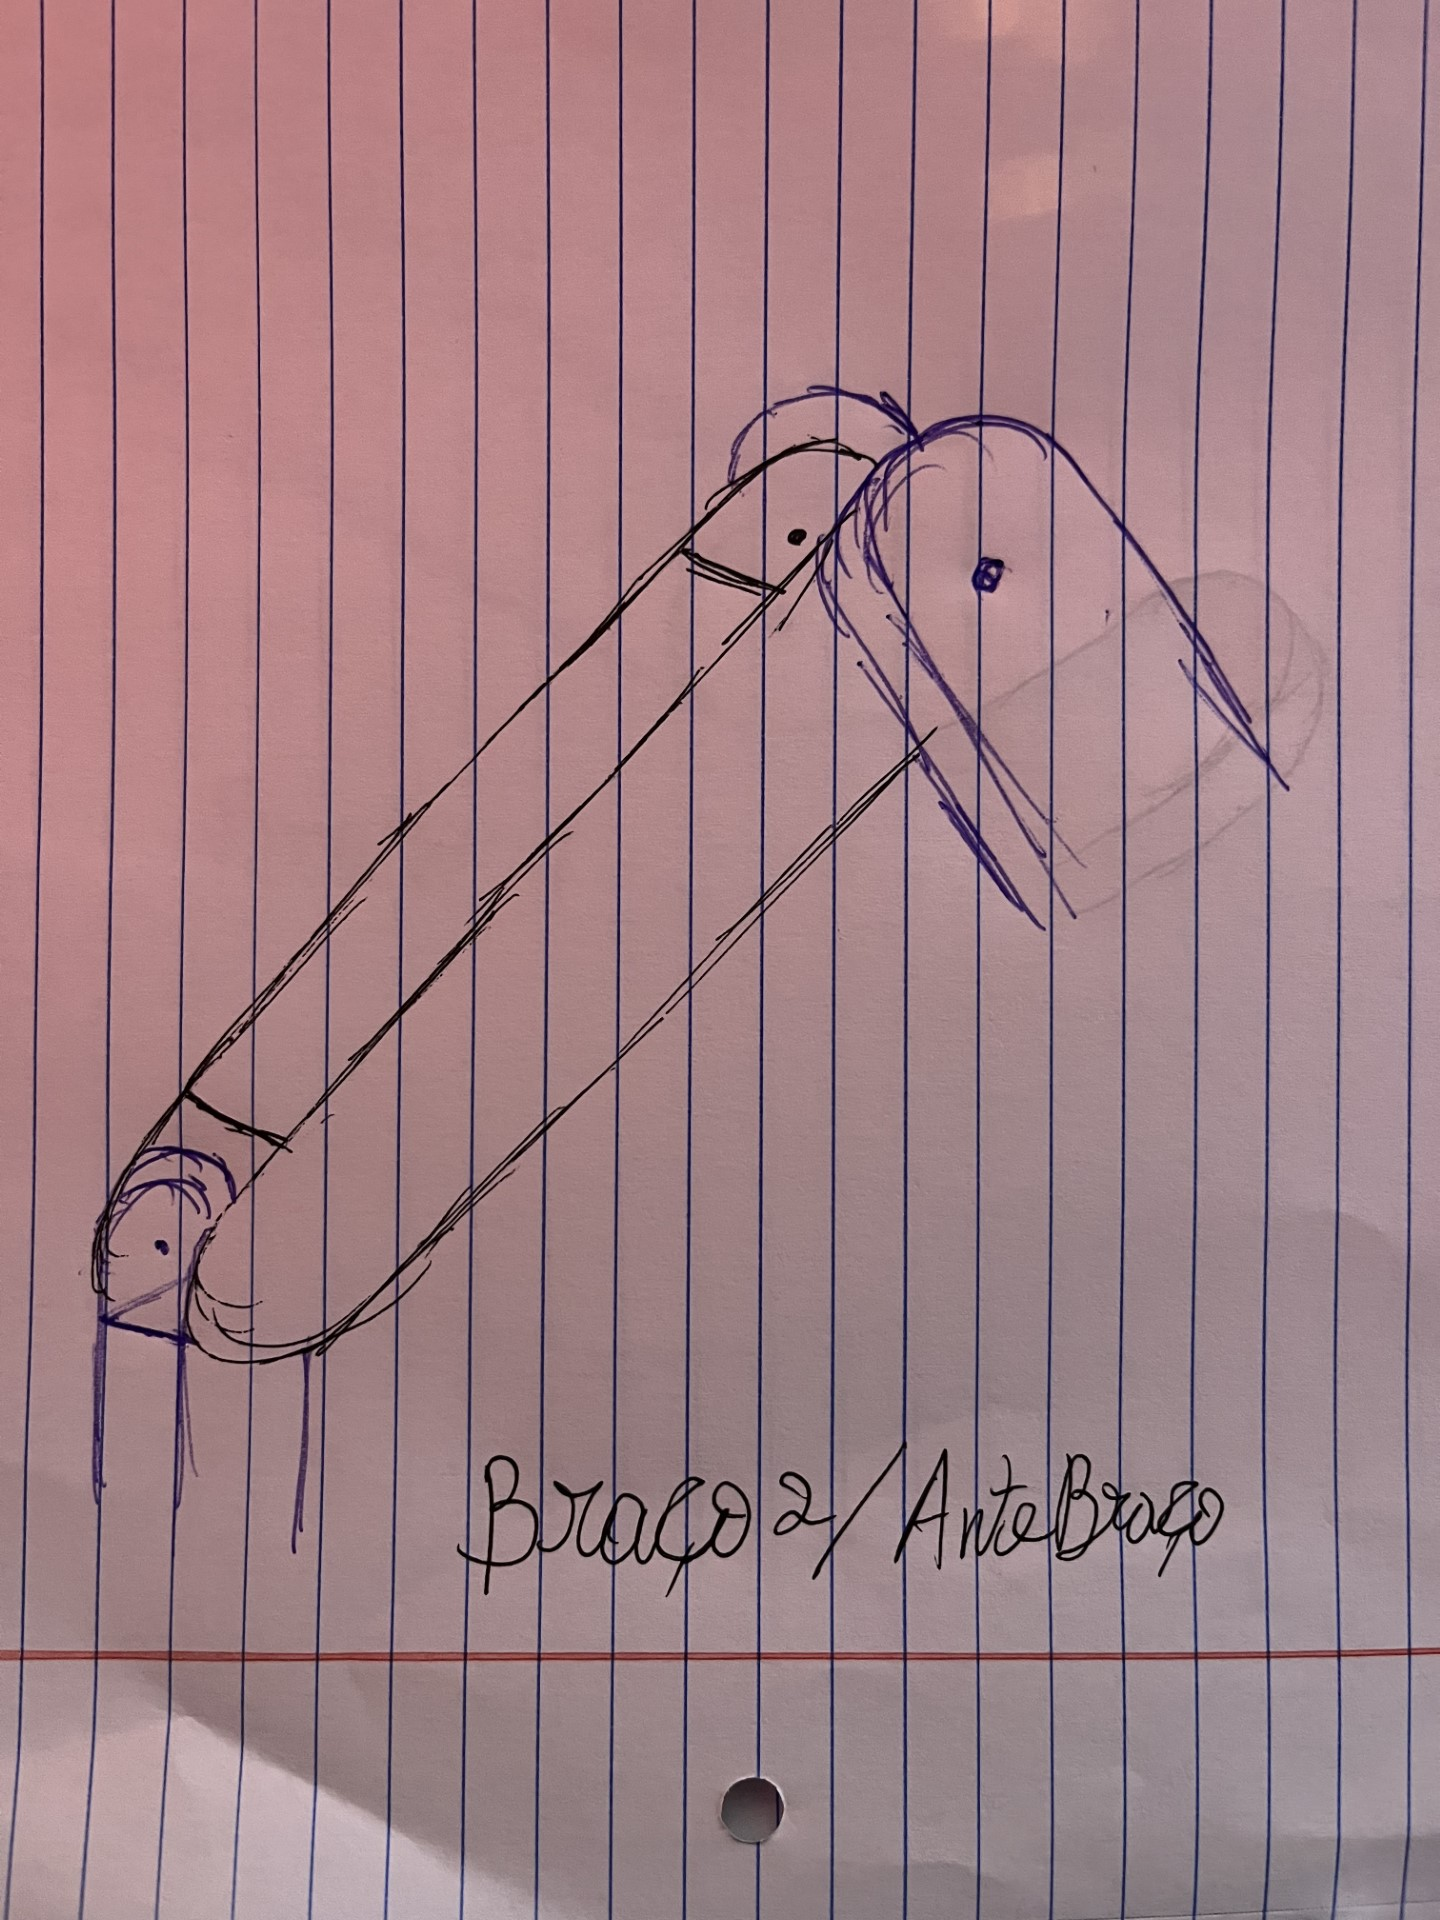 Braço 2/AnteBraço